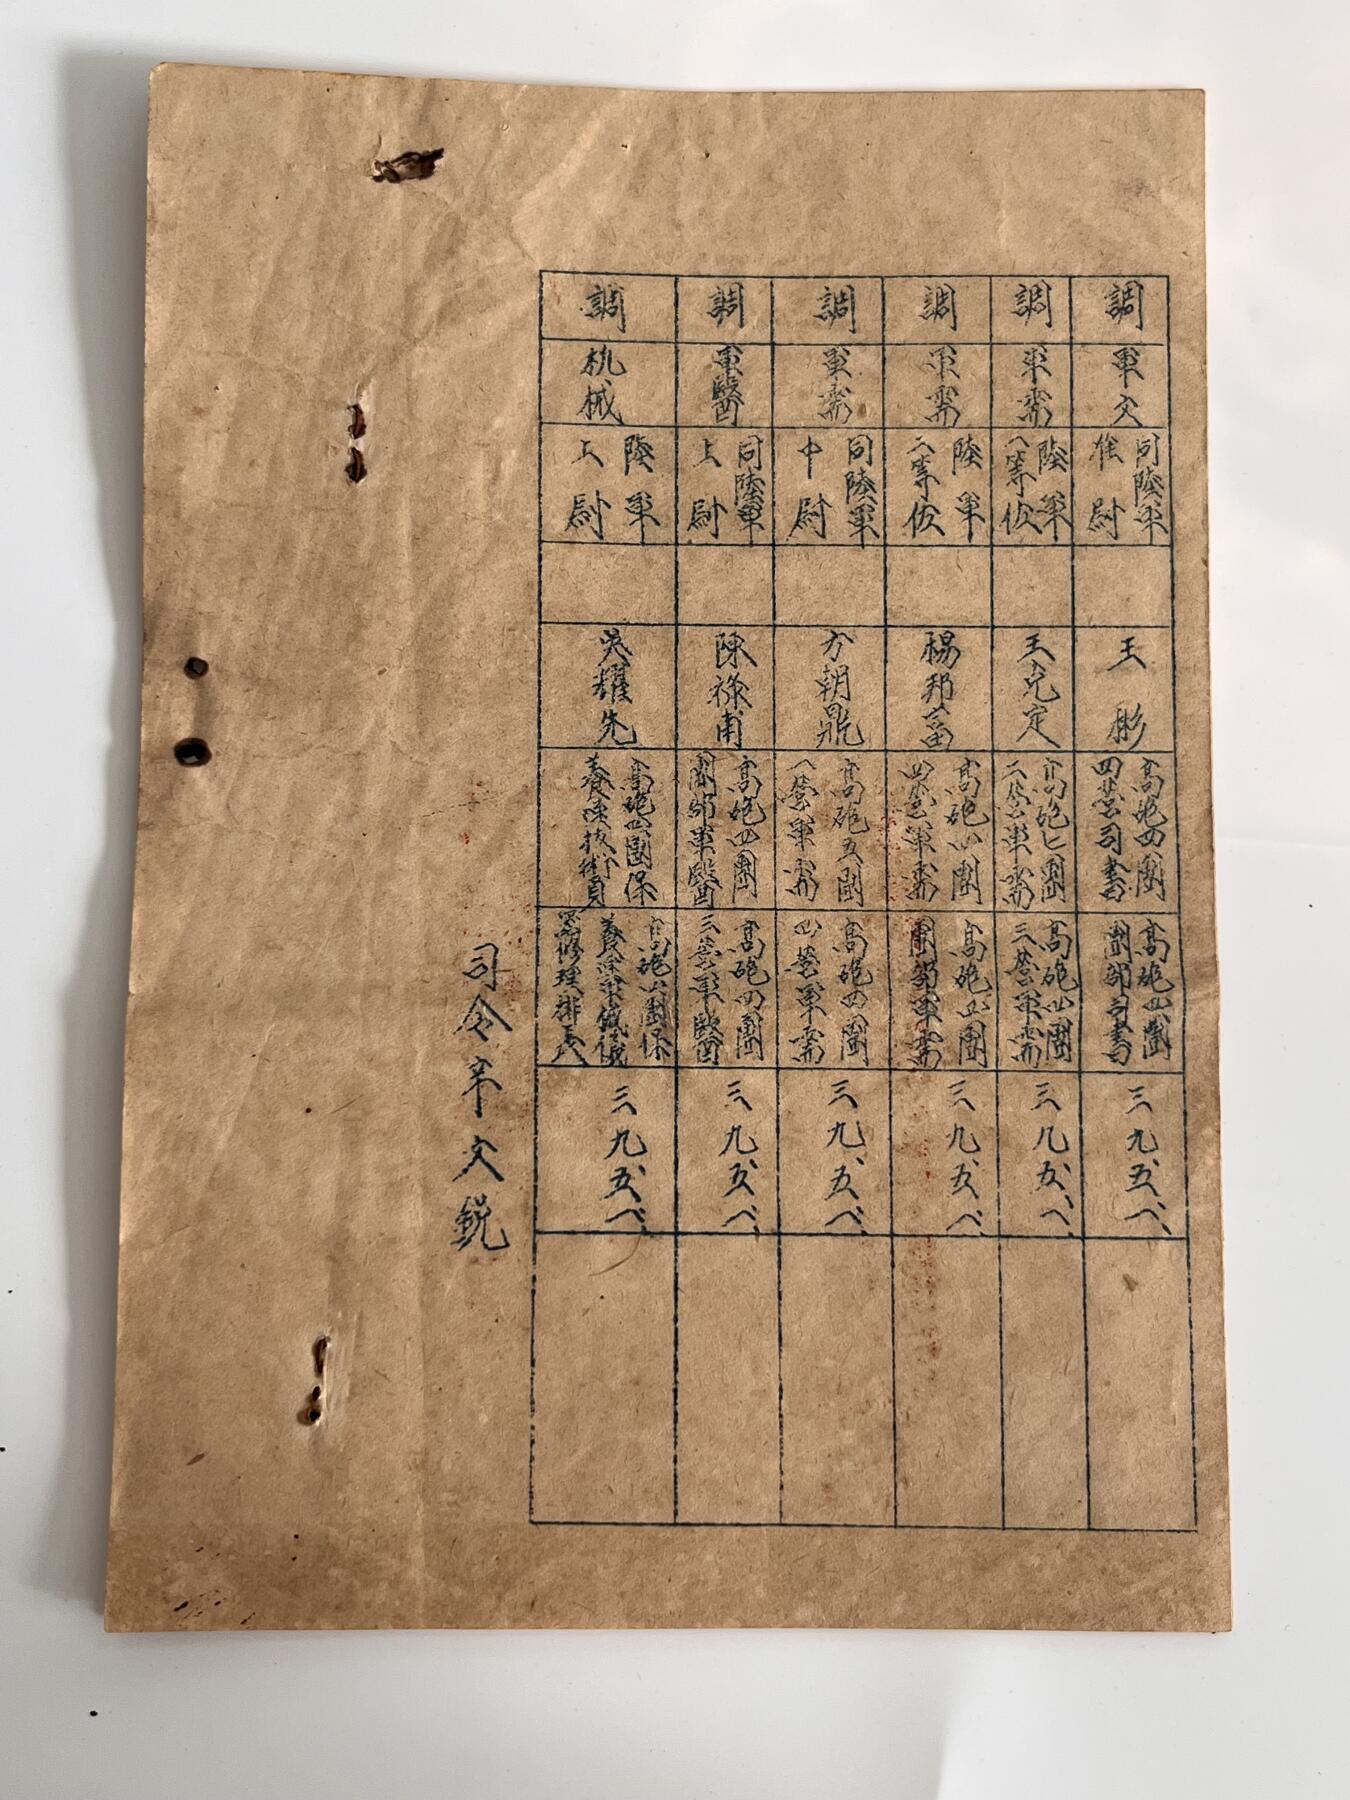 調
軍文
同陸軍
准尉
王彬
高砲四團
四營司書
高砲四團
團部司書
三九、五、
調
軍需
陸軍
王克定
高砲七團
二營軍需
高砲四團
三營軍需
三九、五、
調
軍需
陸軍
二等佐
楊邦富
高砲四團
四營軍需
高砲四團
團部軍需
三九、五、
調
軍需
同陸軍
中尉
方朝鼎
高砲五團
一營軍需
高砲四團
四營軍需
三九、五、
調
軍醫
同陸軍
上尉
陳祿甫
高砲四團
團部軍醫
高砲四團
三營軍醫
三九、五、
調
机械
陸軍
上尉
吳耀先
高砲四團保
養連技術員
高砲四團保
養連
修理排長
三九、五、
司令辛文銳